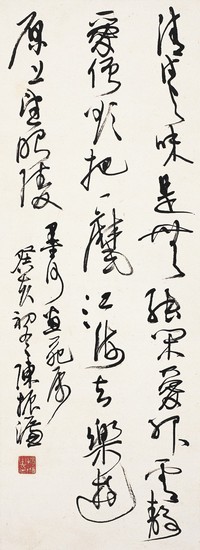 清時有味是無能閑愛孤雲靜
愛僧欲把一麾江海去樂遊
原上望昭陵
墨 苑屬
癸亥初冬陳振濂